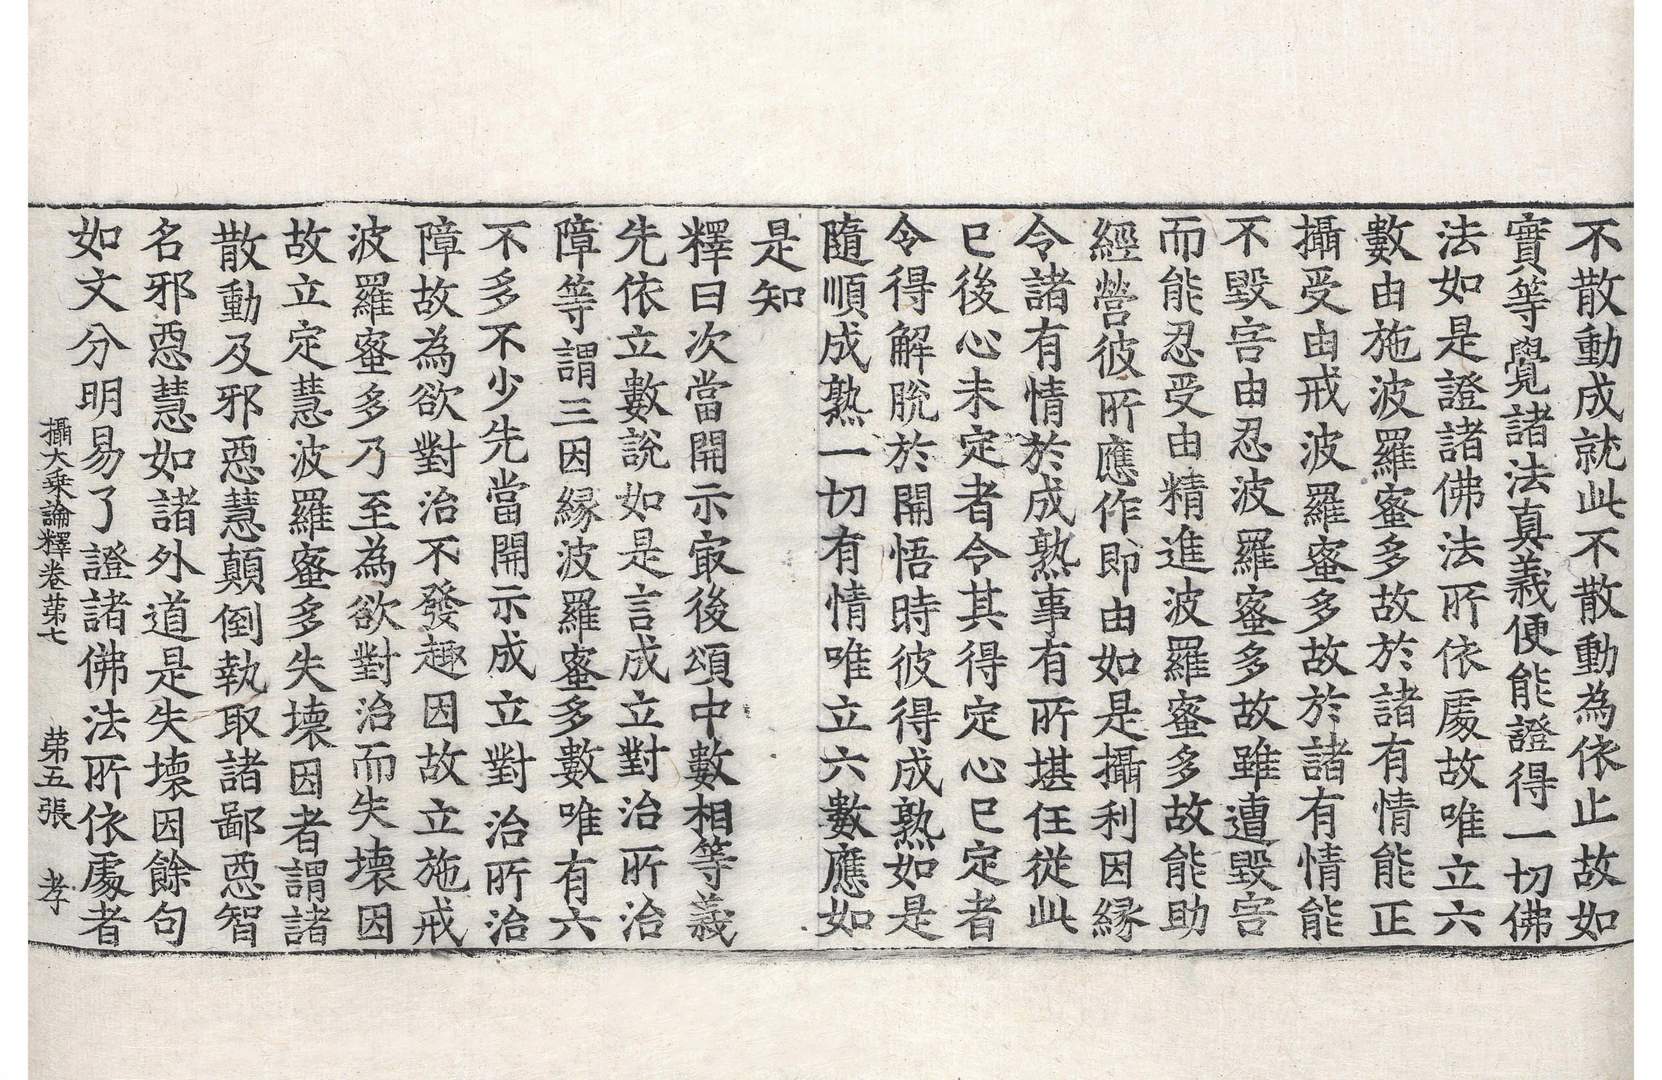 不散動成就此不散動為依止故如
實等覺諸法真義便能證得一切佛
法如是證諸佛法所依處故唯立六
數由施波羅蜜多故於諸有情能正
攝受由戒波羅蜜多故於諸有情能
不毀害由忍波羅蜜多故雖遭毀害
而能忍受由精進波羅蜜多故能助
經營彼所應作即由如是攝利因緣
令諸有情於成熟事有所堪任從此
已後心未定者令其得定心已定者
令得解脫於開悟時彼得成熟如是
隨順成熟一切有情唯立六數應如
是知
釋曰次當開示㝡後頌中數相等義
先依立數說如是言成立對治所治
障等謂三因緣波羅蜜多數唯有六
不多不少先當開示成立對治所治
障故為欲對治不發趣因故立施戒
波羅蜜多乃至為欲對治而失壞因
故立定慧波羅蜜多失壞因者謂諸
散動及邪惡慧顛倒執取諸鄙惡智
名邪惡慧如諸外道是失壞因餘句
如文分明易了證諸佛法所依處者
攝大乘論釋卷苐七 苐五張 孝